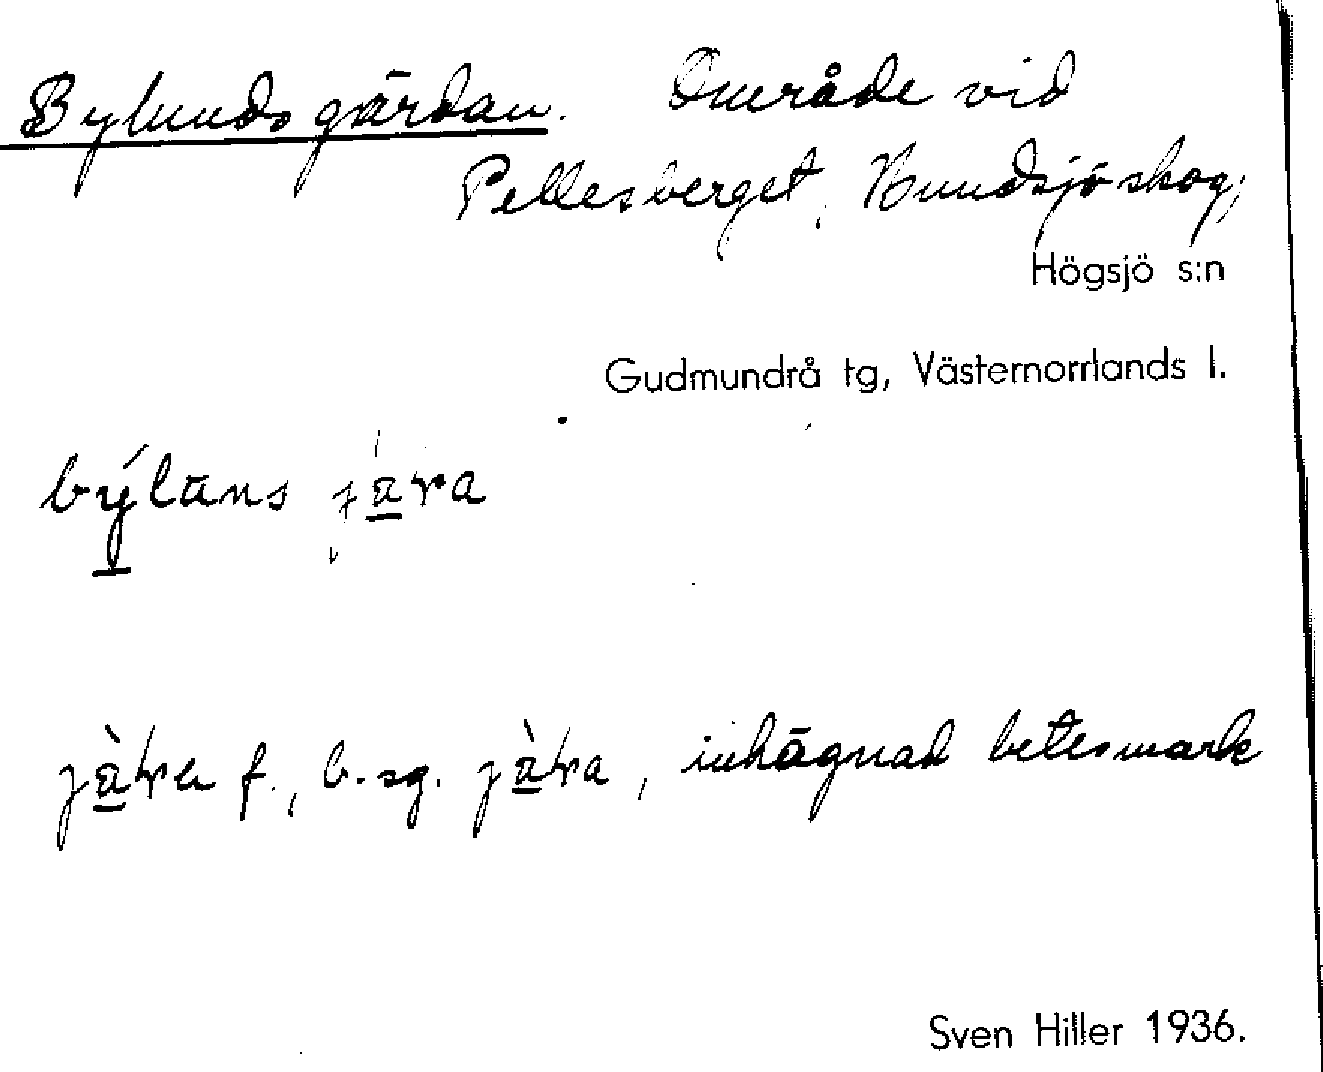 Bylundsgärdan. Område vid
Pellesberget, Hundsjöskog,
Högsjö s:n
Gudmundrå tg, Västernorrlands l.
bý̱lāns
f., b. sg. , inhägnad betesmark
Sven Hiller 1936.